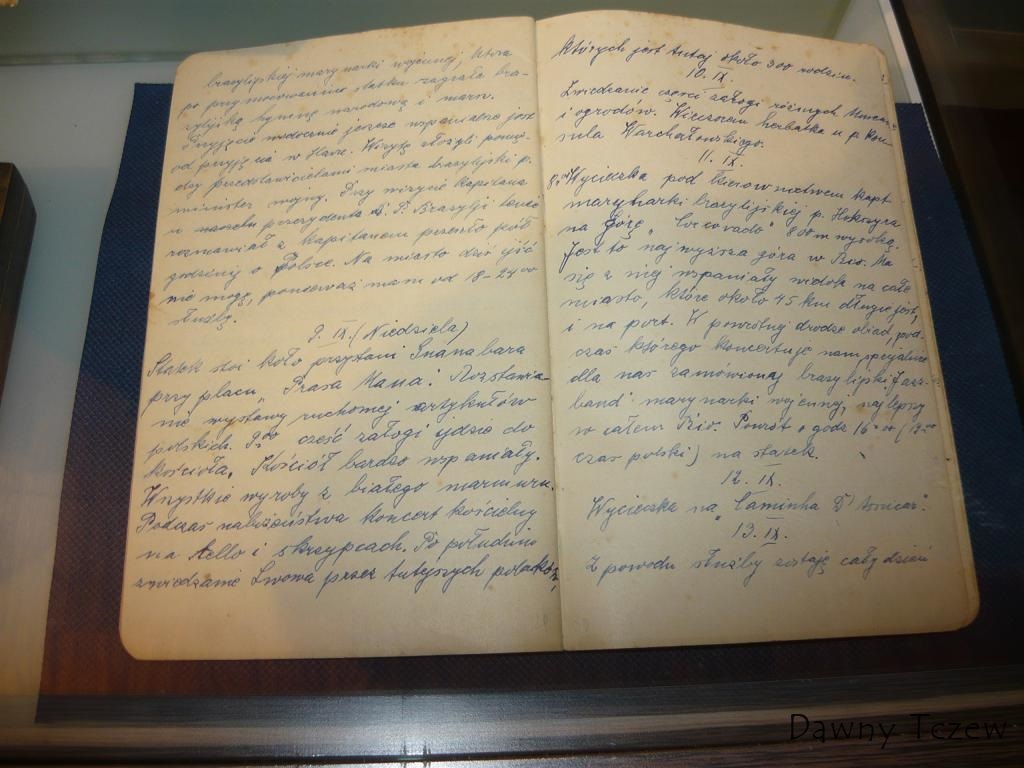 brazylijskiej marynarki wojennej, która
po przymocowaniu statku zagrała bra-
zylijską hymnę narodową i marsz.
Przyjęcie widocznie jeszcze wspanialsze jest
od przyjęcia w Havre. Wizytę złożyli pomię-
dzy przedstawicielami miasta brazylijski p.
minister wojny. Przy wizycie kapitana
u prezydenta Brazylji tenże
rozmawiał z kapitanem przeszło pół
godziny o Polsce. Na miasto dziś iść
nie mogę, ponieważ mam od 18-24 oo
służbę.
9. IX. (Niedziela)
Statek stoi koło przystani Guanabara
przy placu „Prasa Maua". Rozstawia-
nie wystawy ruchomej artykułów
polskich. 9.00 część załogi idzie do
kościoła. Kościół bardzo wspaniały.
Wszystkie wyroby z białego marmuru.
Podczas nabożeństwa koncert kościelny
na cello i skrzypcach. Po południu
zwiedzanie Lwowa przez tutejszych polaków,
których jest tutaj około 300 rodzin.
10. IX.
Zwiedzanie części załogi różnych
i ogrodów. Wieczorem herbatka u p. Kon
sula Warchałowskiego.
11. IX.
Wycieczka pod kierownictwem kapt
marynarki brazylijskiej p.
na górę „Corcovado" 800 m wysoką.
Jest to najwyższa góra w Rio. Ma
się z niej wspaniały widok na całe
miasto, które około 45 km długie jest,
i na port. W powrótnej drodze obiad, pod-
czas którego koncertuje nam specjalnie
dla nas zamówionaj brazylijski „Jazz-
band" marynarki wojennej, najlepszy
w całem Rio. Powrót o godz 16 oo (19 oo
czas polski) na statek.
12. IX.
Wycieczka na „Caminha
13. IX.
Z powodu służby zostaję cały dzień
Dawny Tczew